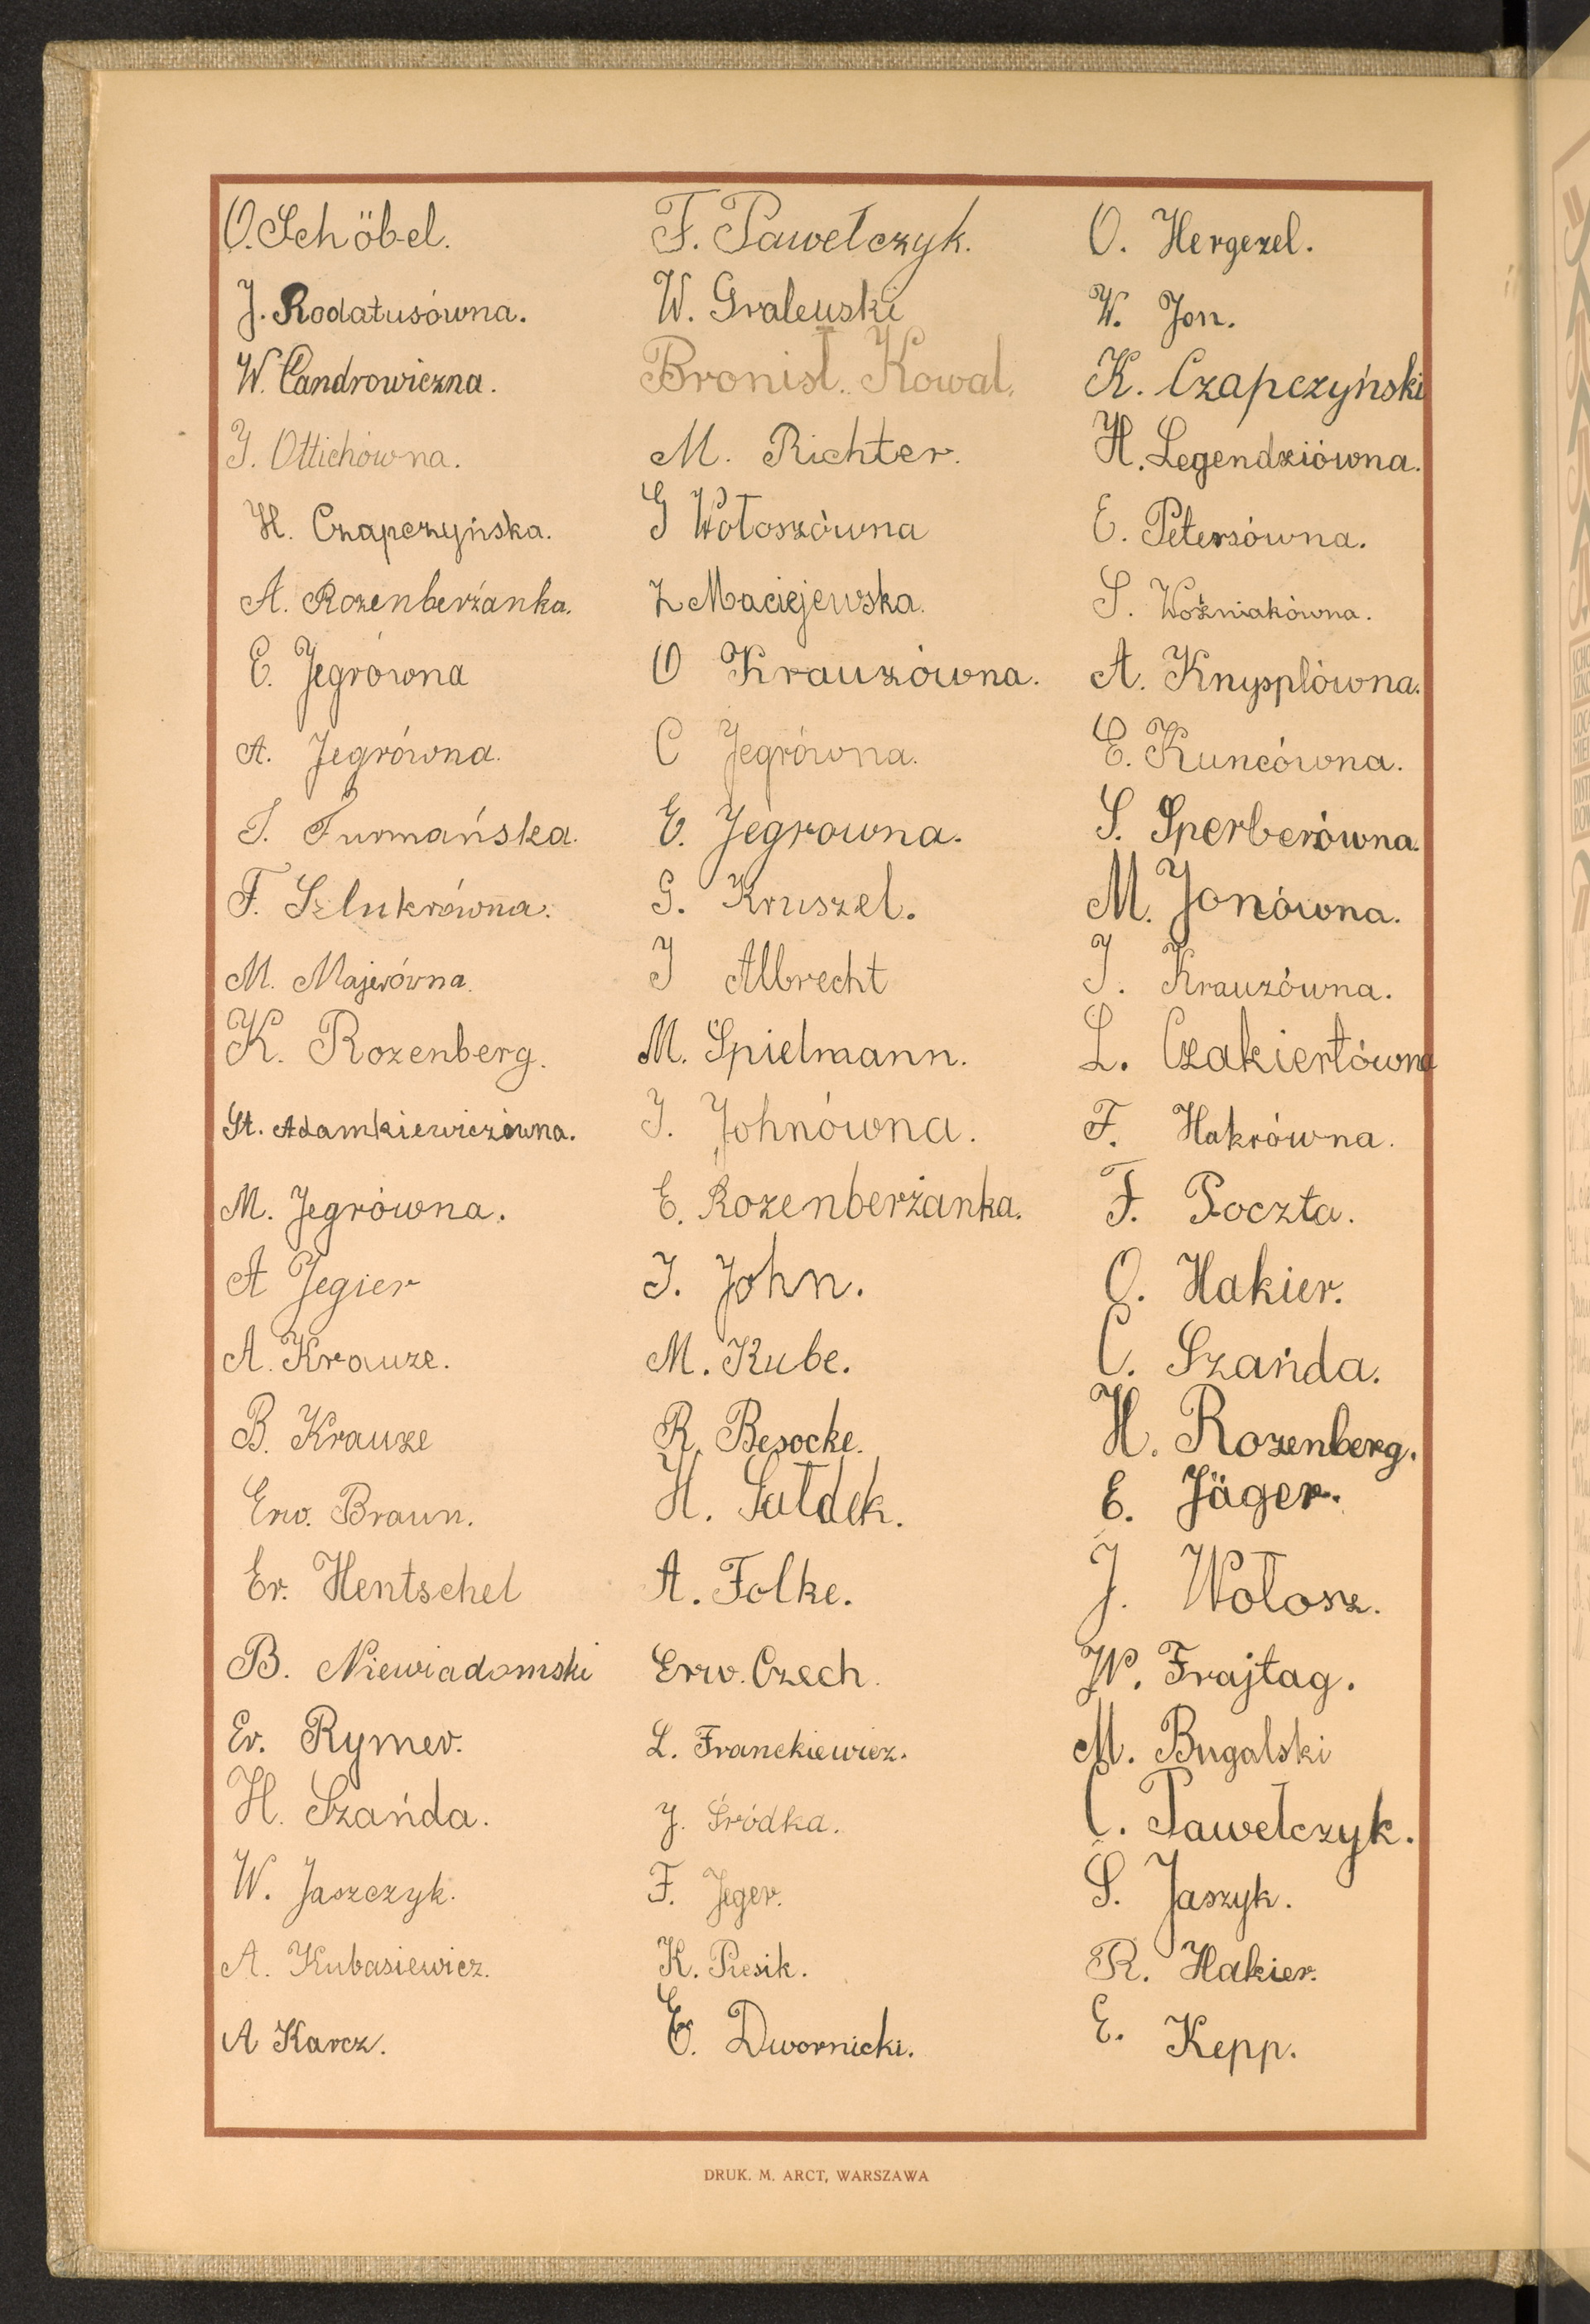 O. Schöbel.
J. Rodatusówna.
W. Candrowiczna.
J. Ottichówna.
H. Czapczyńska.
A. Rozenberżanka.
E. Jegrówna
A. Jegrówna.
J. Furmańska.
F. Szlukrówna.
M. Majerówna.
K. Rozenberg.
St. Adamkiewiczówna.
M. Jegrówna.
A Jegier
A. Krauze.
B. Krauze
Erw. Braun.
Er. Hentschel
B. Niewiadomski
Er. Rymer.
H. Szańda.
W. Jaszczyk.
A. Kubasiewicz.
A Karcz.
F. Pawełczyk.
W. Gralewski
Bronisł. Kowal.
M. Richter.
G Wołoszówna
Z Maciejewska.
O Krauzówna.
C Jegrówna.
E. Jegrowna.
G. Kruszel.
J Albrecht
M. Spielmann.
J. Johnówna.
E. Rozenberżanka.
J. John.
M. Kube.
R. Besocke.
H. Sałdek.
A. Folke.
Erw. Czech.
L. Franckiewicz.
J. Śródka.
F. Jeger.
K. Presik.
E. Dwornicki.
O. Hergezel.
W. Jon.
K. Czapczyński
H. Legendziówna.
E. Petersówna.
S. Woźniakówna.
A. Knysplówna.
E. Kuncówna.
S. Sperberówna.
M. Jonówna.
J. Krauzówna.
L. Czakiertówna
F. Hakrówna.
F. Poczta.
O. Hakier.
C. Szańda.
H. Rozenberg.
E. Jäger.
J. Wołosz.
W. Frajtag.
M. Bugalski
C. Pawełczyk.
S. Jaszyk.
R. Hakier.
E. Kepp.
DRUK. M. ARCT, WARSZAWA